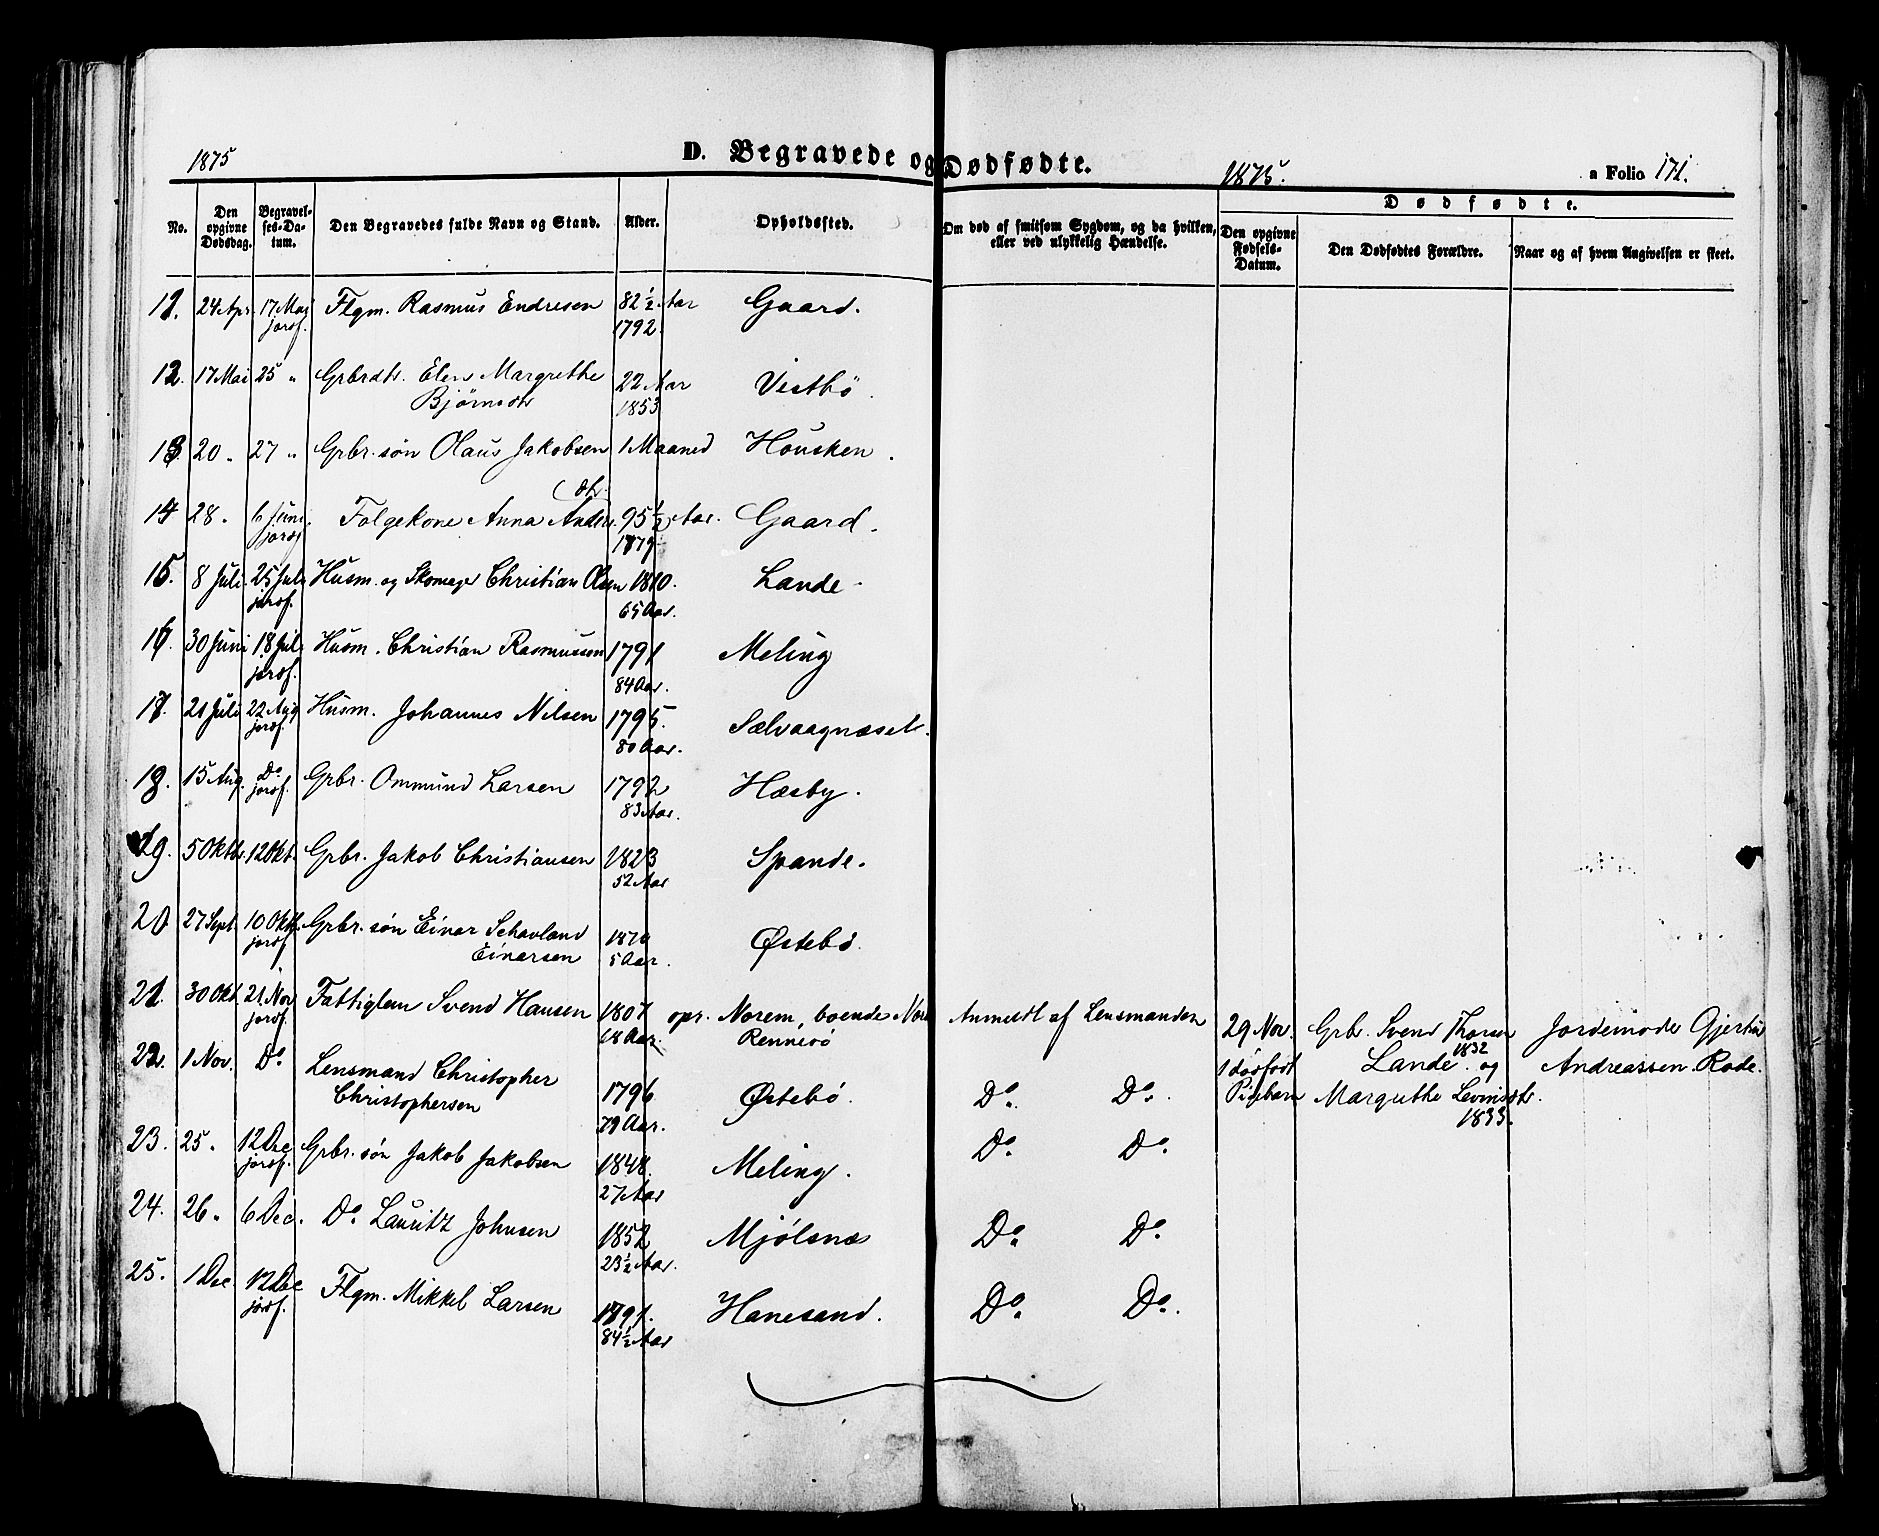 1875
D. Begravede og Dødfødte.
1875.
a Folio 171.
No.
Den opgivne Dødsdag.
Begravelses-Datum.
Den Begravedes fulde Navn og Stand.
Alder.
Opholdssted.
Om død af smitsom Sygdom, og da hvilken, eller ved ulykkelig Hændelse.
Dødfødte.
Den opgivne Fødsels-Datum.
Den Dødfødtes Forældre.
Naar og af hvem Angivelsen er skeet.
11. 24 Apr. 17 Mai Flgm. Rasmus Endresen 82½ Aar Gaard.
jordf. 1792
12. 17 Mai 25 " Grbrdtr. Elen Margrethe 22 Aar Vestbø.
Bjørnsdtr 1853
13. 20 " 27 " Grbr. søn Olaus Jakobsen 1 Maaned Housken.
14 28. 6 Juni. Følgekone Anna Anders dtr. 95½ Aar. Gaard.
jordf 1779
15. 8 Juli 25 Juli Husm. og Skomager Christian Olsen 1810. Lande
jordf. 65 Aar.
16. 30 Juni 18 Juli Husm. Christian Rasmussen 1791 Meling
jordf. 84 Aar.
17. 21 Juli 22 Aug Husm. Johannes Nilsen 1795. Sælvaagnæset.
jordf. 80 Aar.
18. 15 Aug. Do Grbr. Ommund Larsen 1792 Hæsby.
jordf. 83 Aar.
19. 5 Oktbr. 12 Okt. Grbr. Jakob Christiansen 1823 Spande.
52 Aar
20. 27 Sept. 10 Oktb. Grbr. søn Einar Schavland 1870 Østebø.
jordf Einarsen 5 Aar.
21. 30 Okt. 21 Nov Fattiglem Svend Hansen 1807 opr. Norem, boende Anmeldt af Lensmanden
jordf. 68 Aar. Rennesö
29 Nov. Grb. Svend Thorsen Jordemoder Gjertin
1 dødfødt Lande. 1832 og Andreassen Rode.
Pigebarn Margrethe Levinsdtr.
1833.
22. 1 Nov. Do Lensmand Christopher 1796 Østebø. Do. Do.
Christophersen 79 Aar.
23. 25 " 12 Dec Grbr. søn Jakob Jakobsen 1848. Meling. Do. Do.
jordf. 27 Aar
24. 26 " 6 Dec. Do Lauritz Johnsen 1852 Mjölsnæs Do. Do.
23½ Aar.
25. 1 Dec. 12 Dec Flgm. Mikkel Larsen 1791. Hanesand. Do. Do.
jordf. 84½ Aar